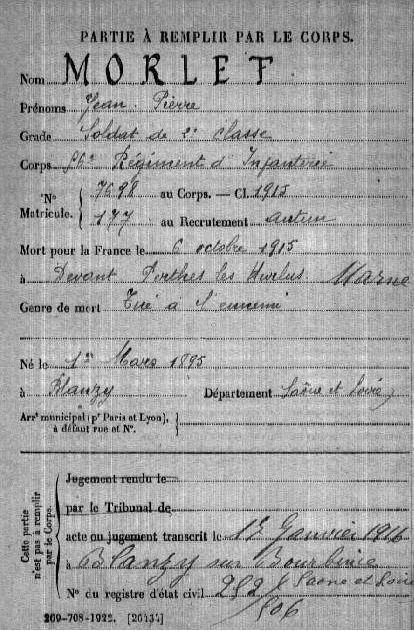 PARTIE À REMPLIR PAR LE CORPS.
Nom MORLET
Prénoms Jean Pierre
Grade Soldat de 2e classe
Corps Régiment d'Infanterie
N° Matricule. 7698 au Corps. — Cl. 1915
177 au Recrutement autun
Mort pour la France le 6 octobre 1915
à Devant Perthes les Hurlus Marne
Genre de mort Tué à l'ennemi
Né le 1er Mars 1895
à Blanzy Département Saône et Loire
Arrt municipal (pr Paris et Lyon),
à défaut rue et N°.
Cette partie n'est pas à remplir par le Corps.
Jugement rendu le
par le Tribunal de
acte ou jugement transcrit le Janvier 1916
à Blanzy sur Bourbince
Saone et Loire
N° du registre d'état civil 252/506
269-708-1922. [26434]